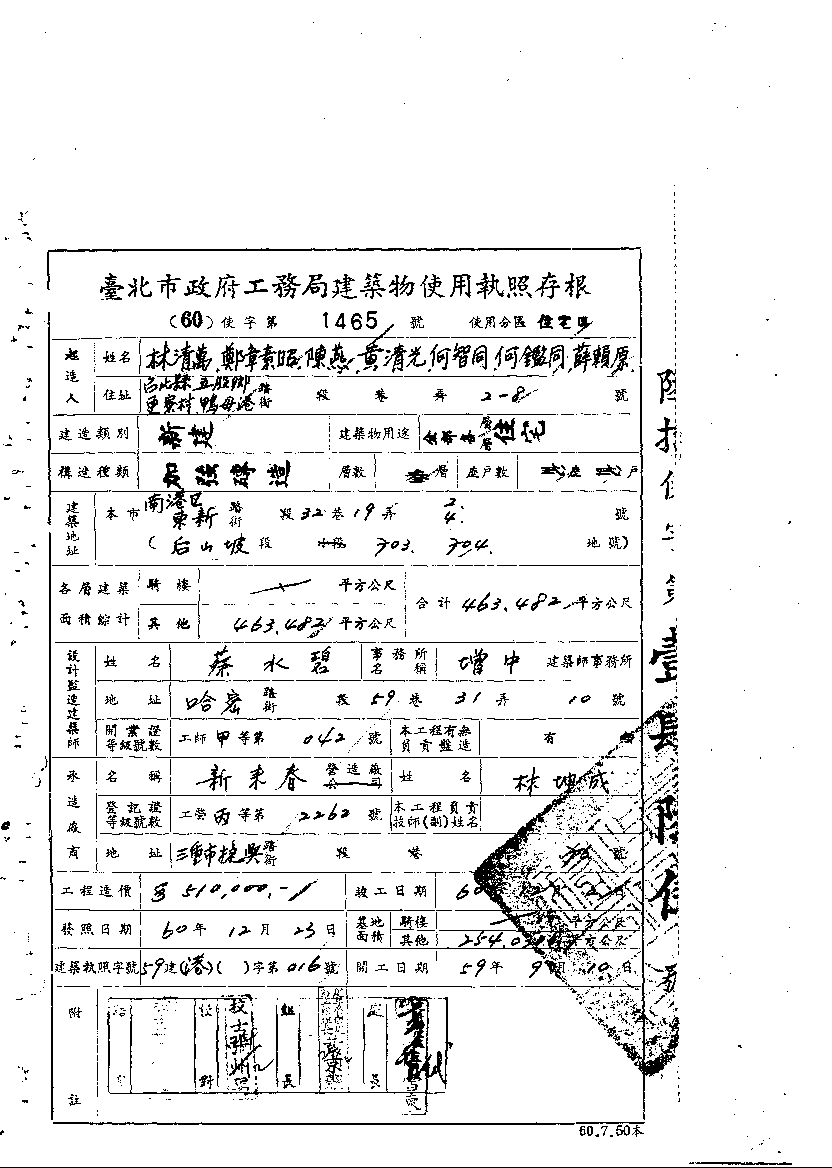 臺北市政府工務局建築物使用執照存根
(60) 使字第 1465 號 使用分區 住宅區
起造人 姓名 林清萬,鄭章素昭,陳燕,黃清光,何智同,何鑑同,薛賴原
住址 台北縣五股鄉 更寮村鴨母港 路街 段 巷 弄 2-8 號
建造類別 新建 建築物用途 住宅
構造種類 加強磚造 層數 層 座戶數 貳座 貳戶
建築地址 本市 南港區 東新 路街 段 32 巷 19 弄 2. 4. 號
( 后山坡 段 小段 303. 304. 地號)
各層建築面積綜計 騎樓 平方公尺 合計 463.482 平方公尺
其他 463.482 平方公尺
設計監造建築師 姓名 蔡水碧 事務所名稱 增中 建築師事務所
地址 哈密 路街 段 59 巷 31 弄 10 號
開業證等級號數 工師 甲 等第 042 號 本工程有無負責監造 有
承造廠商 名稱 新來春 營造廠公司 姓名 林坤成
登記證等級號數 工營 丙 等第 2262 號 本工程負責技師(副)姓名
地址 三重市 路街 段 巷 號
工程造價 510,000.- 竣工日期 60 年 12 月 日
發照日期 60 年 12 月 23 日 基地面積 騎樓 平方公尺
其他 平方公尺
建築執照字號 59 建(港)( )字第 016 號 開工日期 59 年 9 月 10 日
附註
校對 技士
組長
長 代
60.7.50本